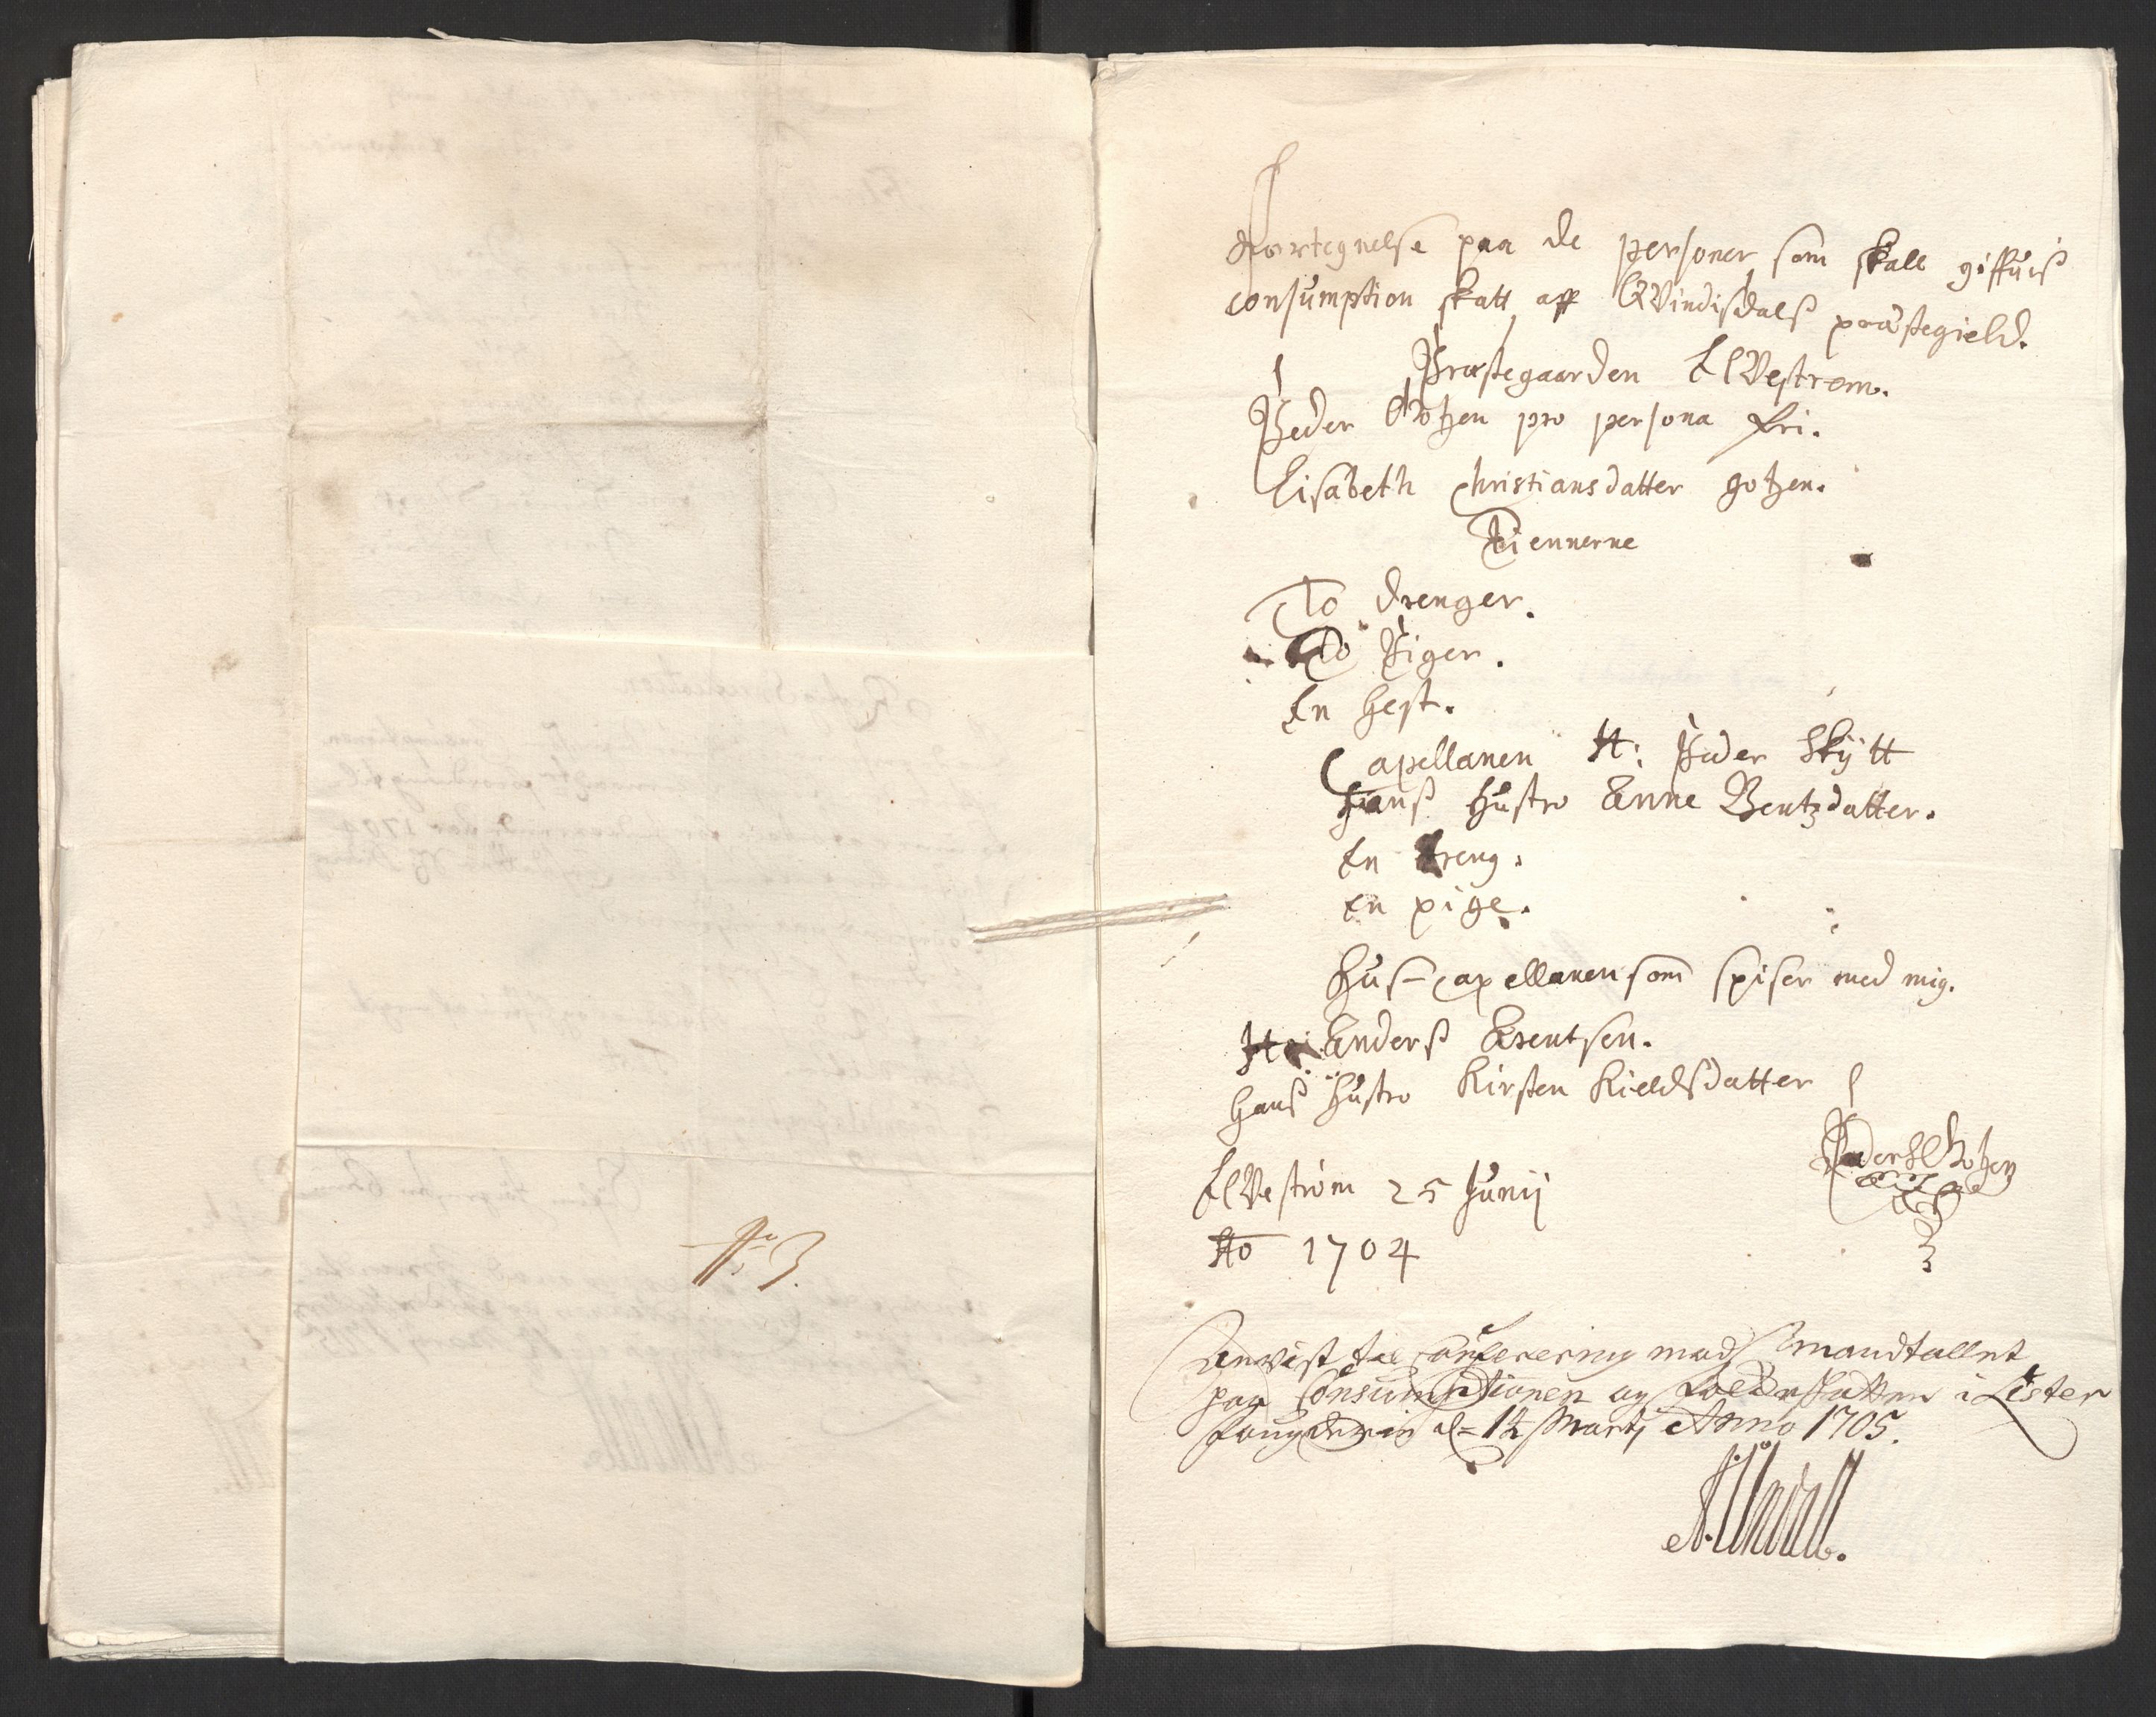 No 3.
Fortegnelse paa de personer som skall giffuis
consumption skatt aff QVindisdals præstegield.
Præstegaarden ElVestrøm.
Peder Götzen pro persona fri.
Lisabeth Christiansdatter gotzen.
Tiennerne
To drenger.
To Piger.
En hest.
Capellanen H: Peder Skÿtt
hans hustro Anne Bentzdatter.
En dreng.
En pige.
Hus-Capellanen som spiser med mig.
Hr: Anders Arentsen.
hans hustro Kirsten Kieldsdatter
ElVestrøm 25 Junij
Ao 1704
Peder Gotzen
Anvist til conferering med mandtallet
paa Consumptionen og folckeskatten i Lister
fougderie d= 12 Martj Anno 1705.